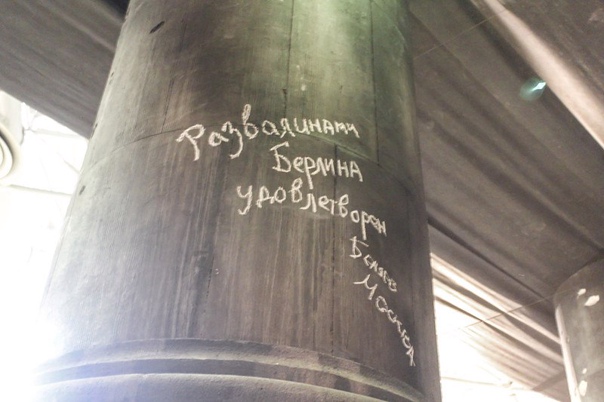 Развалинами
Берлина
удовлетворен
Беляев
Москва